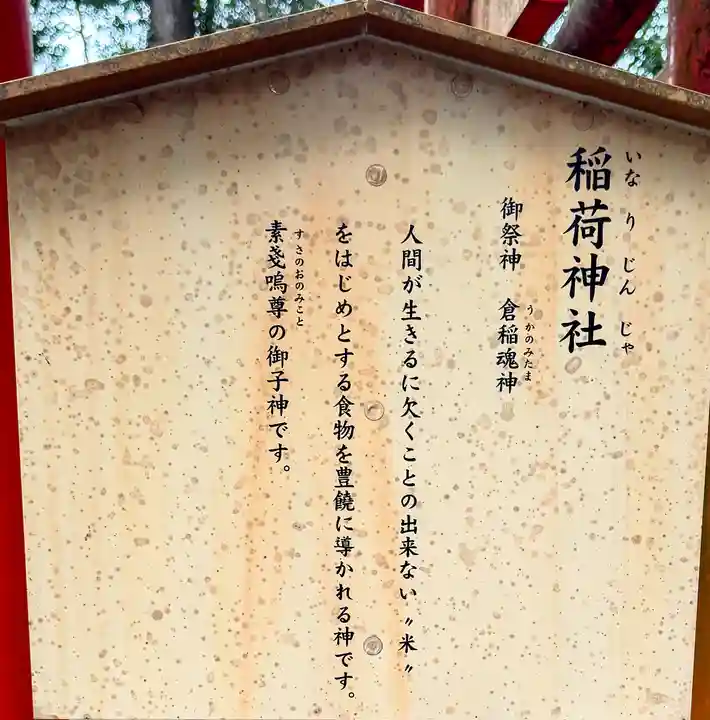 稲荷神社
いなりじんじゃ
御祭神 倉稲魂神
うかのみたま
人間が生きるに欠くことの出来ない〝米〟
をはじめとする食物を豊饒に導かれる神です。
素戔嗚尊の御子神です。
すさのおのみこと